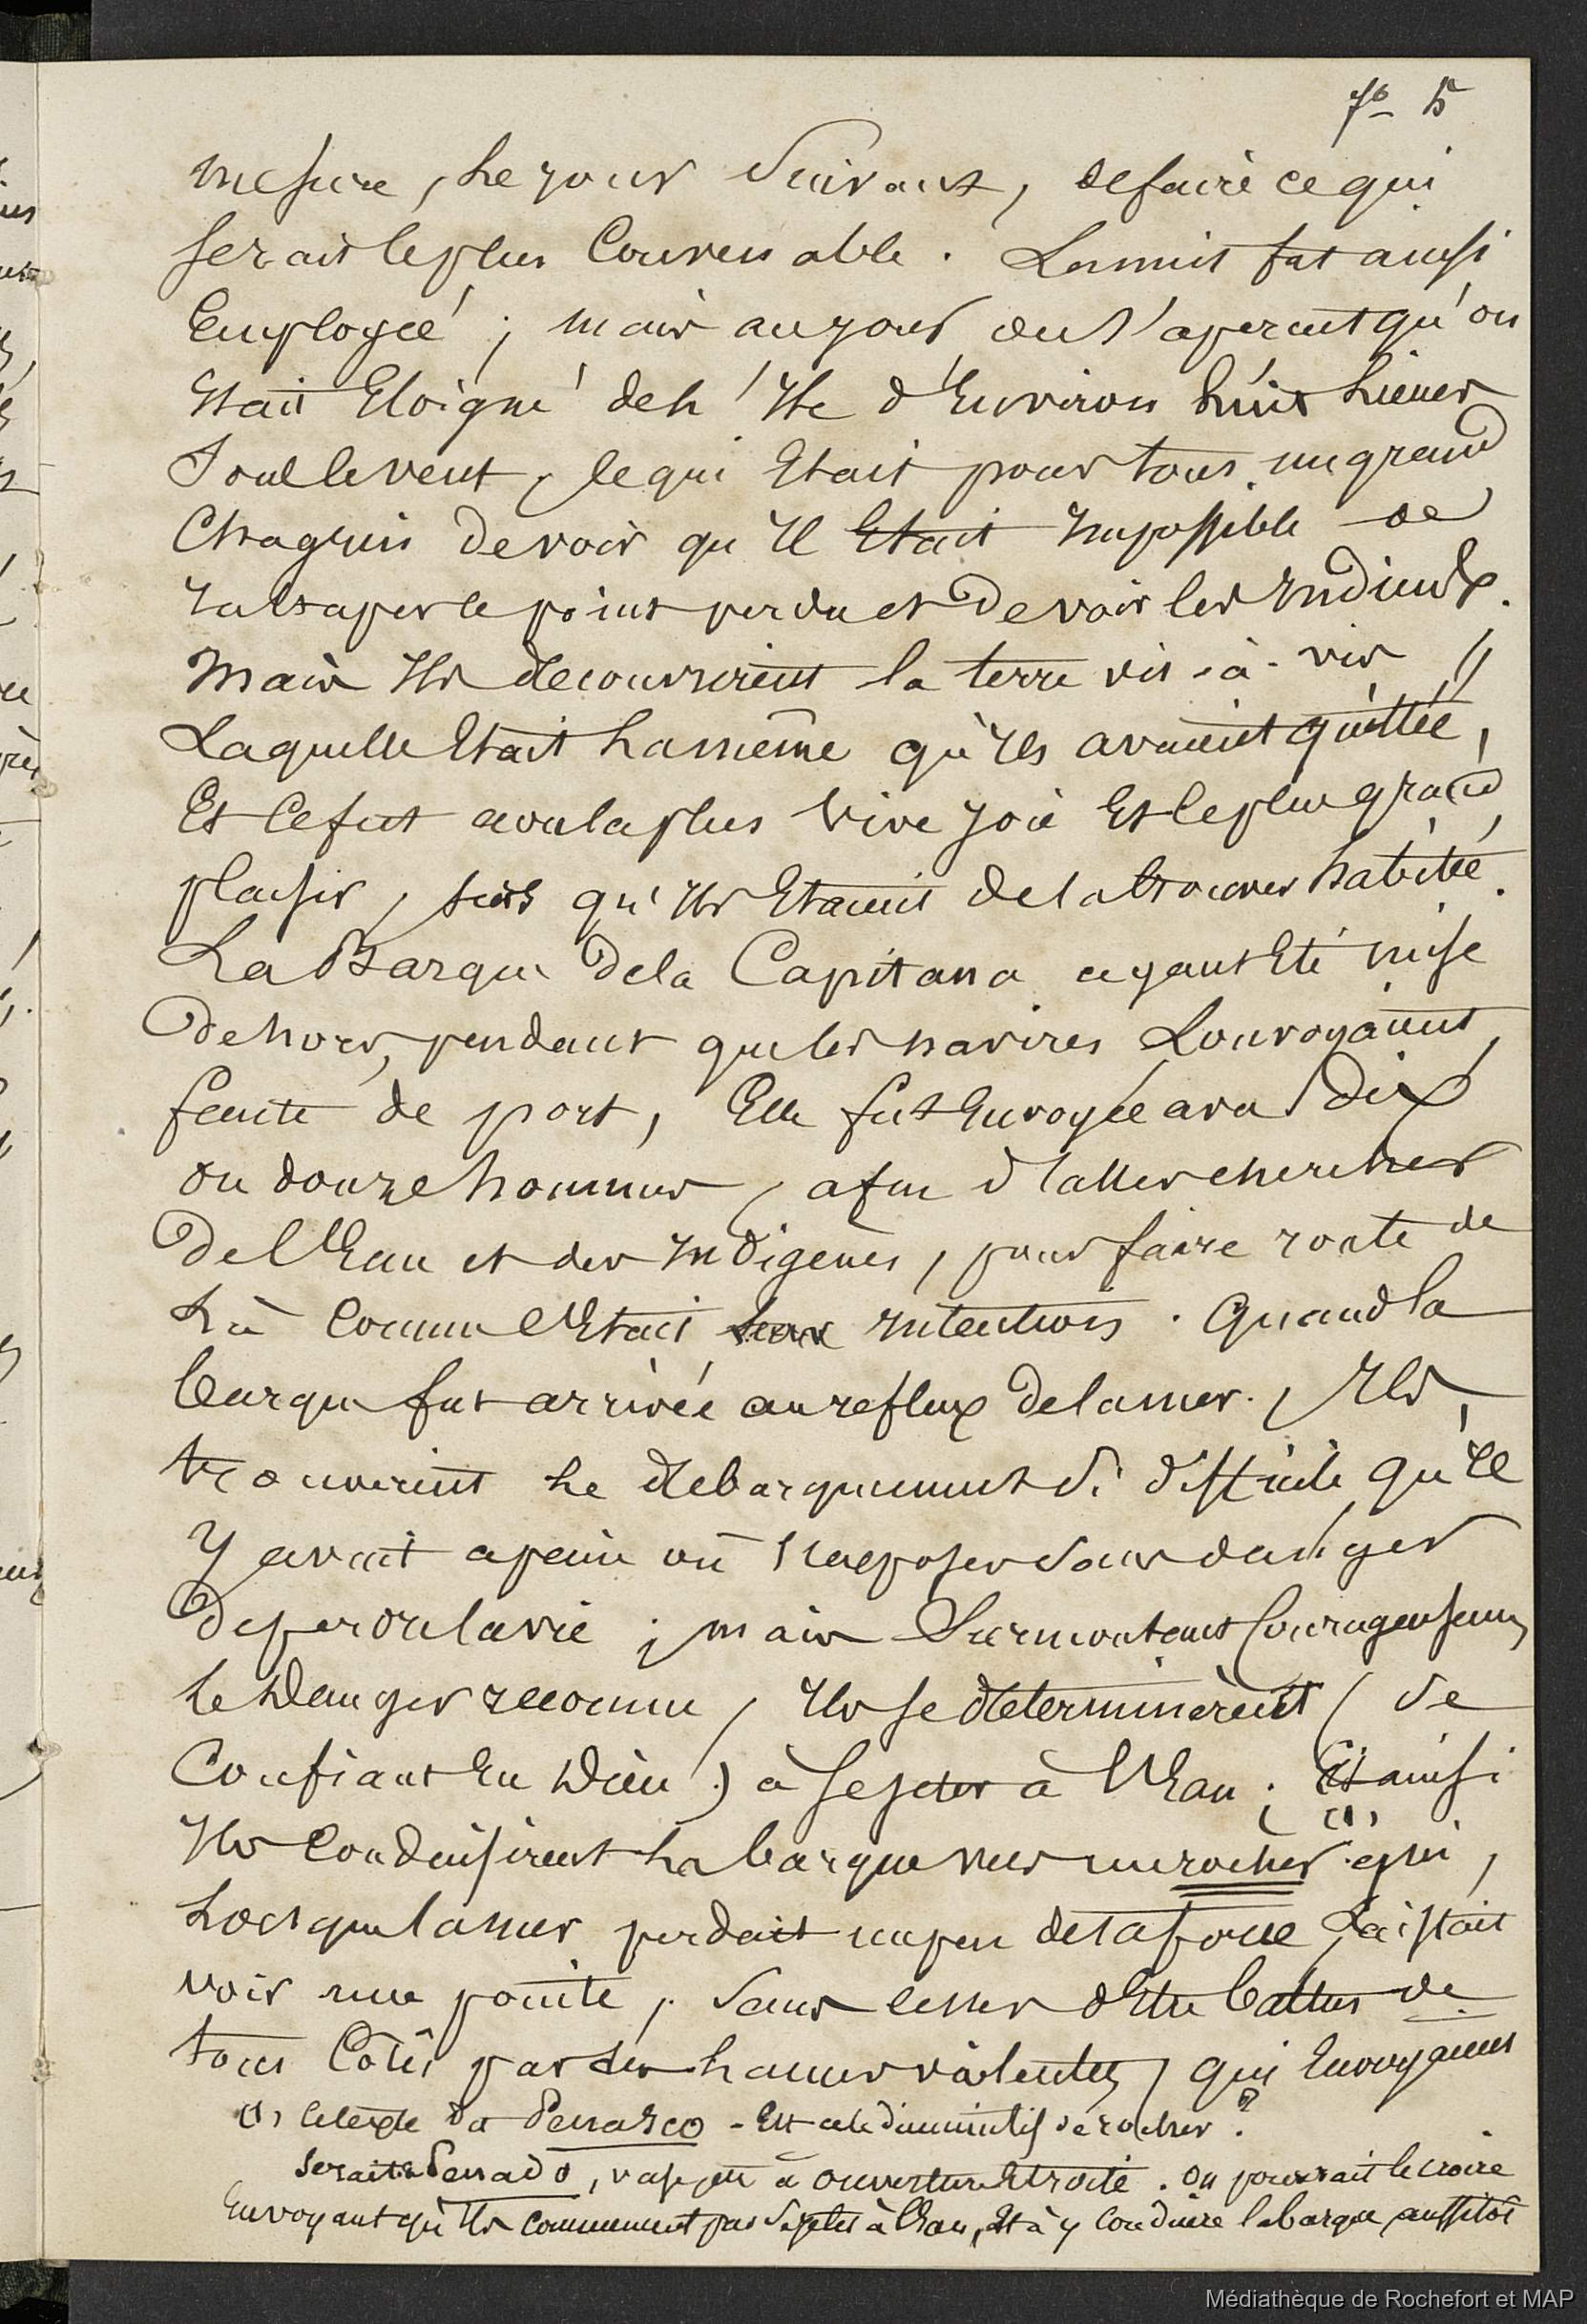 fo 5
mesure, le jour suivant, de faire ce qui
serait le plus Convenable. La nuit fut ainsi
Employée ; mais au jour on s'aperçut qu'on
Etait Eloigné de l'Ile d'Environ huit Lieues
Sous le vent, ce qui Etait pour tous un grand
Chagrin de voir qu'Il Etait Impossible de
rattraper le point perdu et De voir les Indiens.
Mais Ils decouvrirent la terre vis-à-vis
Laquelle Etait la même qu'Ils avaient quittée,
Et Ce fut avec la plus Vive joie Et le plus grand
plaisir, sûrs qu'Ils Etaient de la trouver habitée.
La Barque De la Capitana ayant Eté mise
Dehors, pendant que les navires Louvoyaient,
faute de port, Elle fut Envoyée avec dix
ou douze hommes, afin d'aller chercher
De l'Eau et des Indigènes, pour faire route de
Là Comme C'Etait leur intention. Quand la
barque fut arrivée au reflux De la mer, Ils
trouvèrent le debarquement si difficile qu'Il
Y avait a peine où s'exposer sans danger
De perdre la vie ; mais Surmontant Courageusem
le Danger reconnu, Ils se determinèrent ( se
Confiant En Dieu ) à se jeter à l'Eau ; Et ainsi
(1)
Ils Conduisirent la barque vers un rocher qui,
Lorsque la mer perdait un peu de sa force, Laissait
voir une pointe, sans cesser d'Etre battus de
tous Côtés par des lames violentes, qui Envoyaient
(1) le texte da Penasco - Est ce le diminutif de rocher ?
serait-ce Penado, vase jeté à ouverture Etroite. On pourrait le croire
En voyant qu'Ils commencent par se jeter à l'Eau, Et à y Conduire la barque aussitôt
Médiathèque de Rochefort et MAP